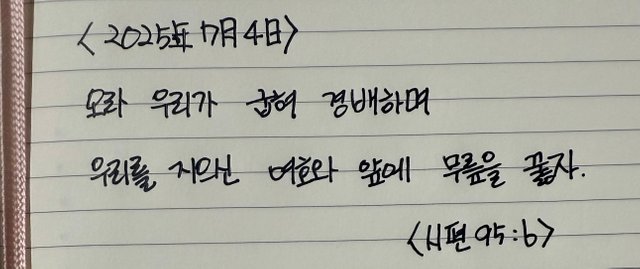 <2025年 7月 4日>
오라 우리가 굽혀 경배하며
우리를 지으신 여호와 앞에 무릎을 꿇자.
<시편 95:6>